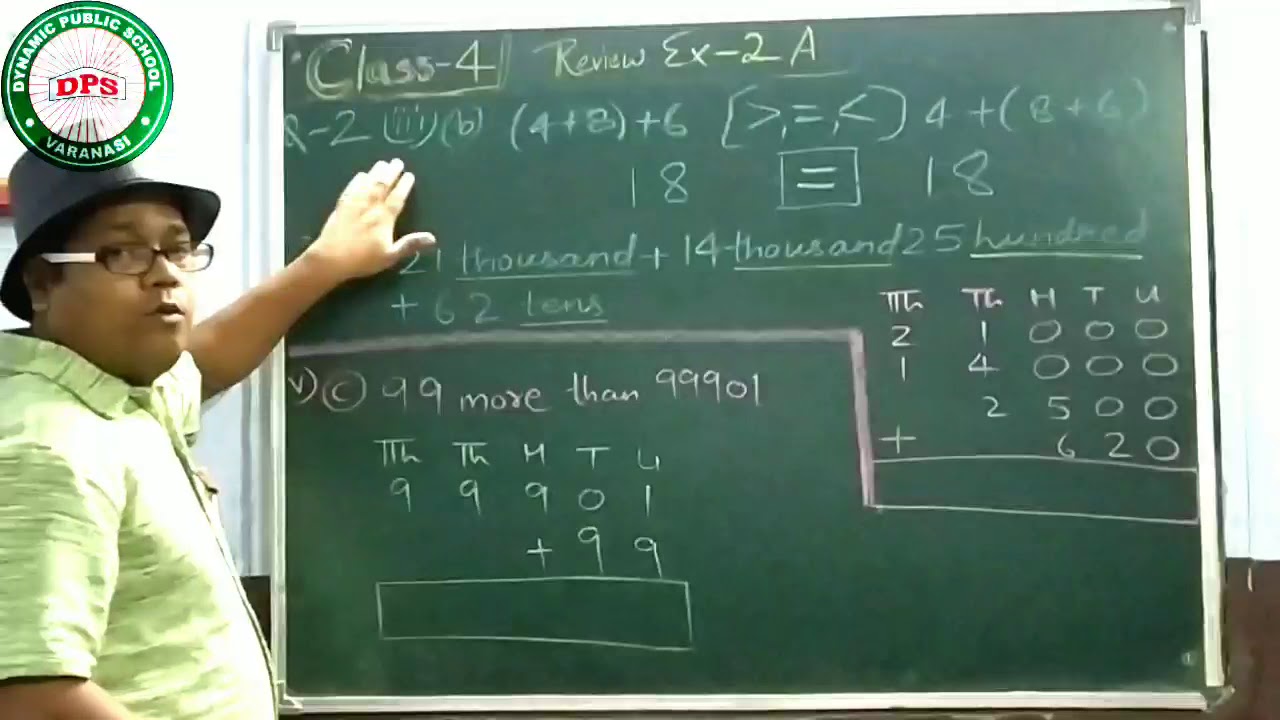 DYNAMIC PUBLIC SCHOOL
DPS
VARANASI
Class-4 Review Ex-2 A
Q-2 (iii) (b) (4+8)+6 [>,=,<] 4+(8+6)
18 = 18
21 thousand + 14 thousand 25 hundred
+ 62 tens
TTh Th H T U
2 1 0 0 0
1 4 0 0 0
2 5 0 0
+ 6 2 0
v) c 99 more than 99901
TTh Th H T U
9 9 9 0 1
+ 9 9